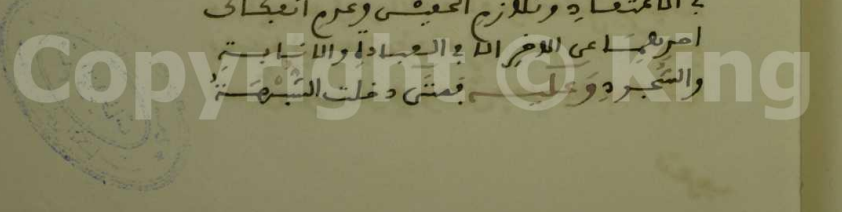 في الاعتقاد وتلازم وعدم انفكاك
احدهما عن الاخر الا في العبادة والانابة
والسجود وعليه فمتى دخلت الشبهة
Copyright © King